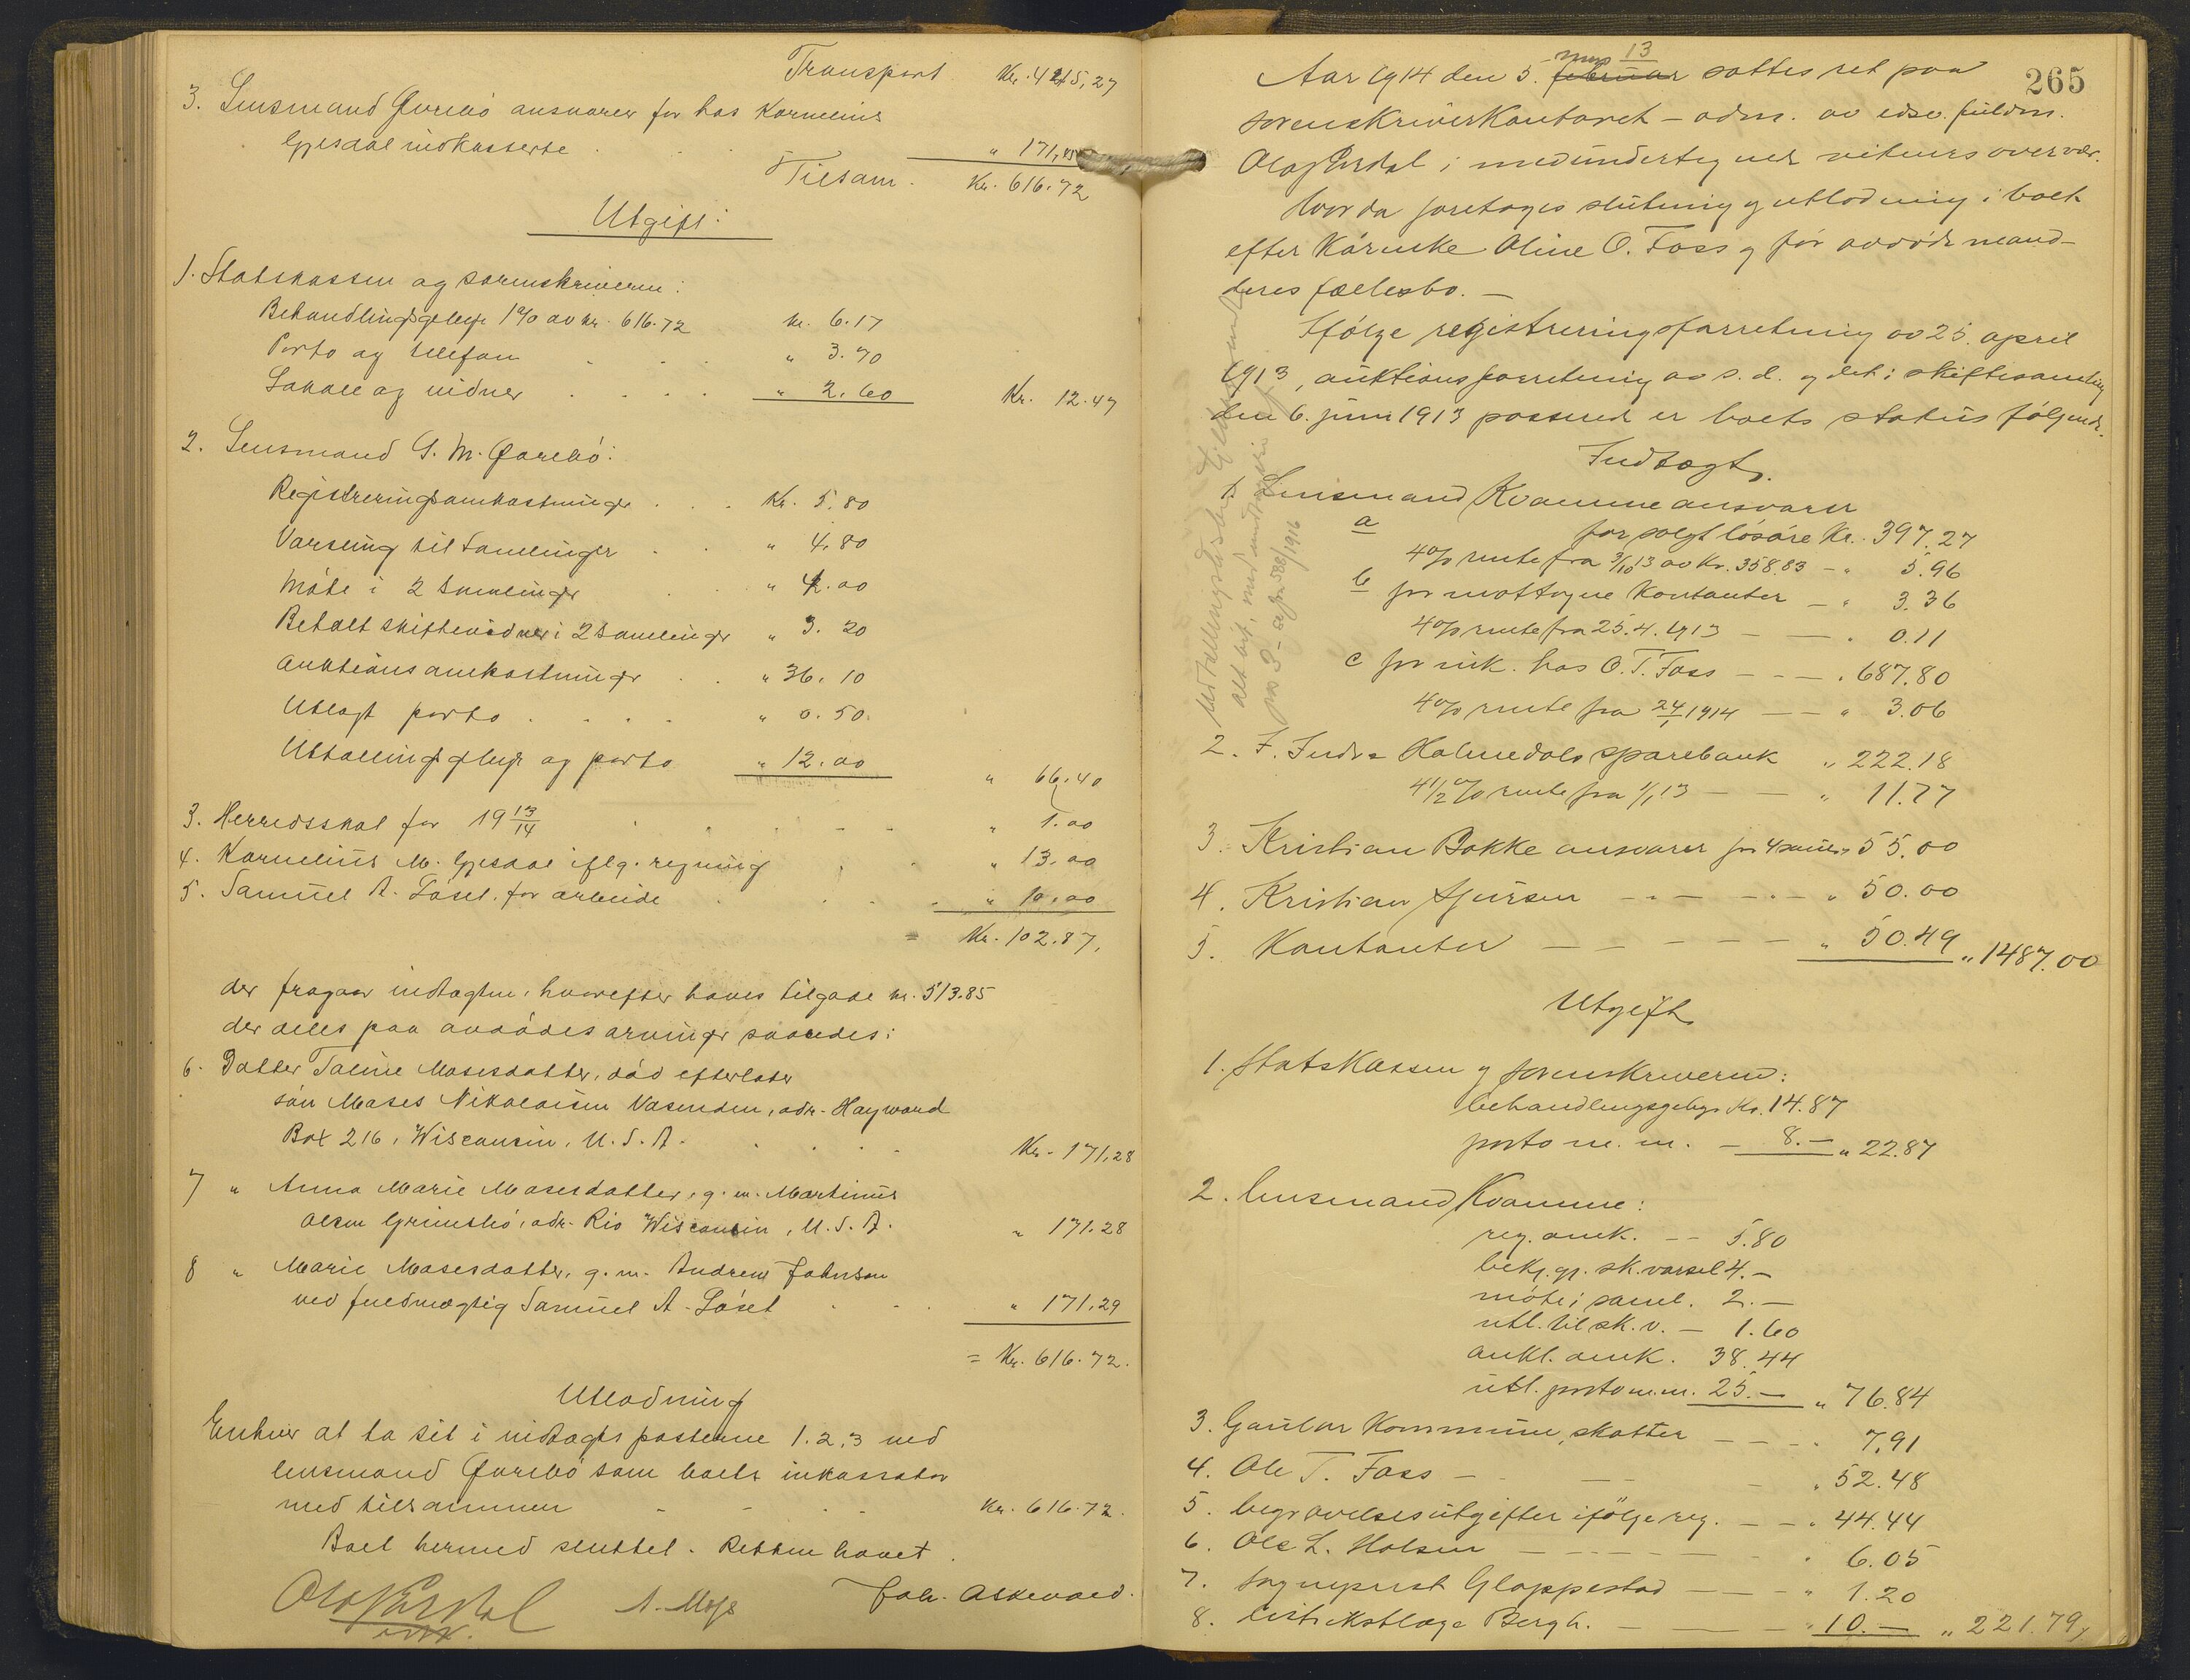 Transport Kr. 445,27
3. Lensmand Qvrebö ansvarer for hos Kornelius
Gjesdal indkasserte . . . " 171,45
Tilsam. Kr. 616.72
Utgift:
1. Statskassen og sorenskriveren:
Behandlingsgebyr 1% av kr. 616.72 kr. 6.17
Porto og telefon . . . " 3.70
Lokale og vidner . . . . " 2.60 Kr. 12.47
2. Lensmand G. M. Qvrebö:
Registreringsomkostninger . . . Kr. 5.80
Varsling til Samlinger . . " 4.80
Möte i 2 Samlinger . . " 4.00
Betalt skiftevidner i 2 Samlinger " 3.20
Auktionsomkostninger . . " 36.10
Utlagt porto . . . . " 0.50
Utbetalingsgebyr og porto " 12.00 " 66.40
3. Herredsskat for 19 13/14 . . . " 1.00
4. Kornelius M. Gjesdal iflg. regning . . " 13.00
5. Samuel A. Löset, for arbeide . . . . " 10.00
= Kr. 102.87,
der fragaar indtægten, hvorefter haves tilgode kr. 513.85
der deles paa avdödes arvinger saaledes:
6. Datter Taline Mosesdatter, död efterlater
sön Moses Nikolaisen Vasenden, adr. Hayward
Box 216, Wisconsin, U. S. A. . . . . Kr. 171,28
7 " Anna Marie Mosesdatter, g. m. Martinus
Olsen Grimsbö, adr. Rio Wisconsin, U. S. A. " 171.28
8 " Marie Mosesdatter, g. m. Andrew Johnson
ved fuldmægtig Samuel A. Löset . . . " 171,29
= Kr. 616.72.
Utlodning
Enhver at ta sit i indtægts posterne 1.2.3 ved
lensmand Qvrebö som boets inkassator
med tilsammen . . . Kr. 616.72.
Boet hermed sluttet. Retten hævet.
A. Moss Joh. Askevold.
265
Aar 1914 den 5. februar mars 13 sattes ret paa
sorenskriverkontoret – adm. av edsv. fuldm.
Olaf Årstal i medundertegnede vitners overvær.
Hvorda foretoges slutning og utlodning i boet
efter Kårenke Oline O. Foss og för avdöde mand –
deres fællesbo. –
Ifölge registreringsforretning av 25. april
1913, auktionsforretning av s. d. og det i skiftesamling
den 6. juni 1913 passered er boets status fölgende.
Indtægt.
1. Lensmand Kvamme ansvarer
a for solgt lösöre Kr. 397.27
4% rente fra 3/10 13 av Kr. 358.83 – " 5.96
b for mottagne Kontanter – " 3.36
4% rente fra 25.4.1913 – – " 0.11
c for ink. hos O. T. Foss – – – " 687.80
4% rente fra 24/1 1914 – – " 3.06
2. I Indre Holmedals sparebank " 222.18
4 1/2 % rente fra 1/1 13 – – " 11.77
3. Kristian Bakke ansvarer for 4 sauer " 55.00
4. Kristian Sjursen – " – – " – " 50.00
5. Kontanter – – – – – " 50.49 " 1487.00
Utgift
1. Statskassen og sorenskriveren:
behandlingsgebyr Kr. 14.87
porto m. m. – 8.– " 22.87
2. lensmand Kvamme:
reg. omk. – – 5.80
bekj. gj. sk. varsel 4.–
möte i saml. 2.–
utl. til sk. v. – 1.60
aukt. omk. 38.44
utl. porto m.m. 25.– " 76.84
3. Gaular Kommune, skatter – – – " 7.91
4. Ole T. Foss – – – " 52.48
5. begravelsesutgifter ifölge reg. – – " 44.44
6. Ole L. Holsen – – – – – " 6.05
7. sogneprest Gloppestad – – – " 1.20
8. distriktslæge Bergh. – – – " 10.– " 221.79,